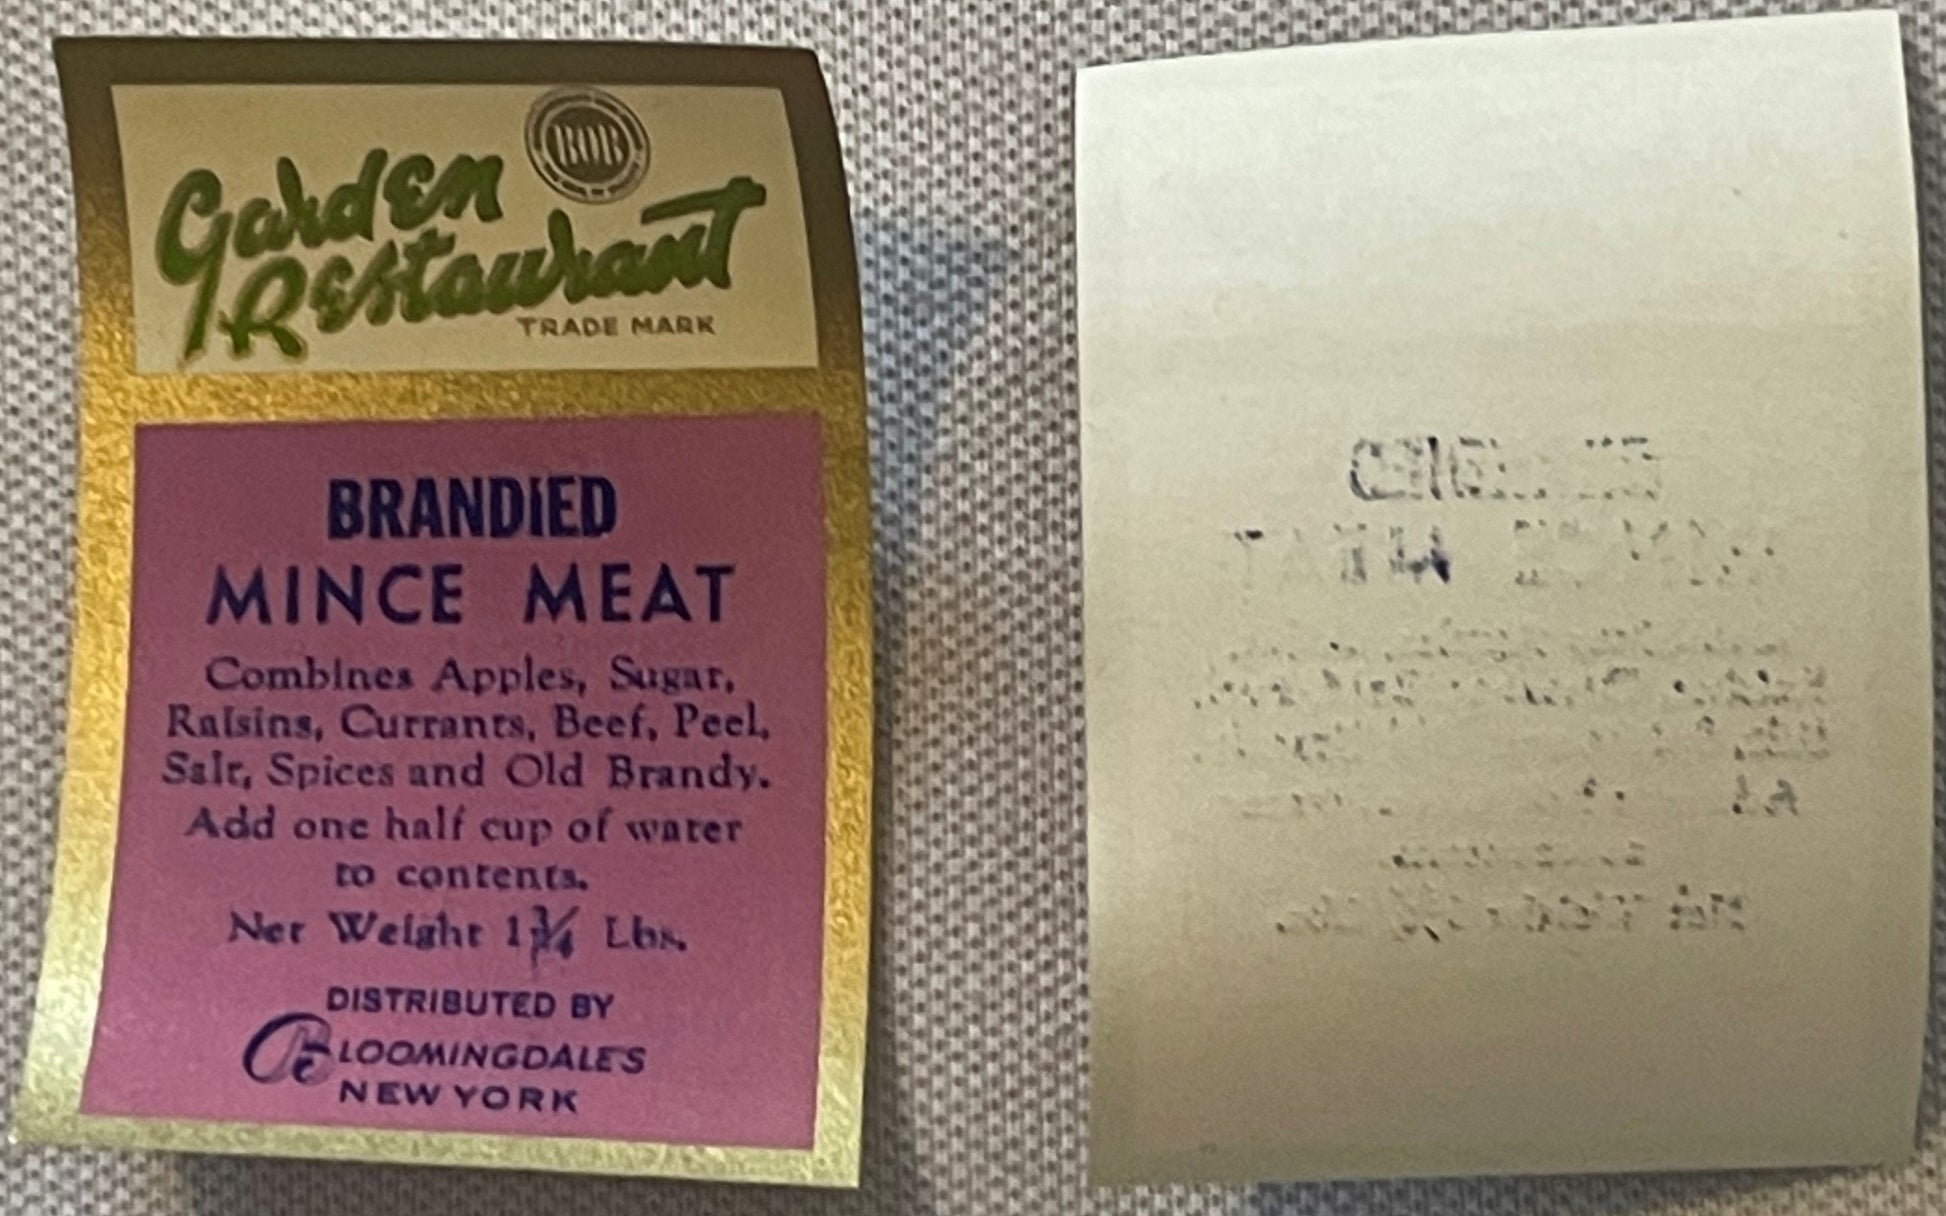 BOB
Garden
Restaurant
TRADE MARK
BRANDIED
MINCE MEAT
Combines Apples, Sugar,
Raisins, Currants, Beef, Peel,
Salt, Spices and Old Brandy.
Add one half cup of water
to contents.
Net Weight 1¾ Lbs.
DISTRIBUTED BY
BLOOMINGDALE'S
NEW YORK